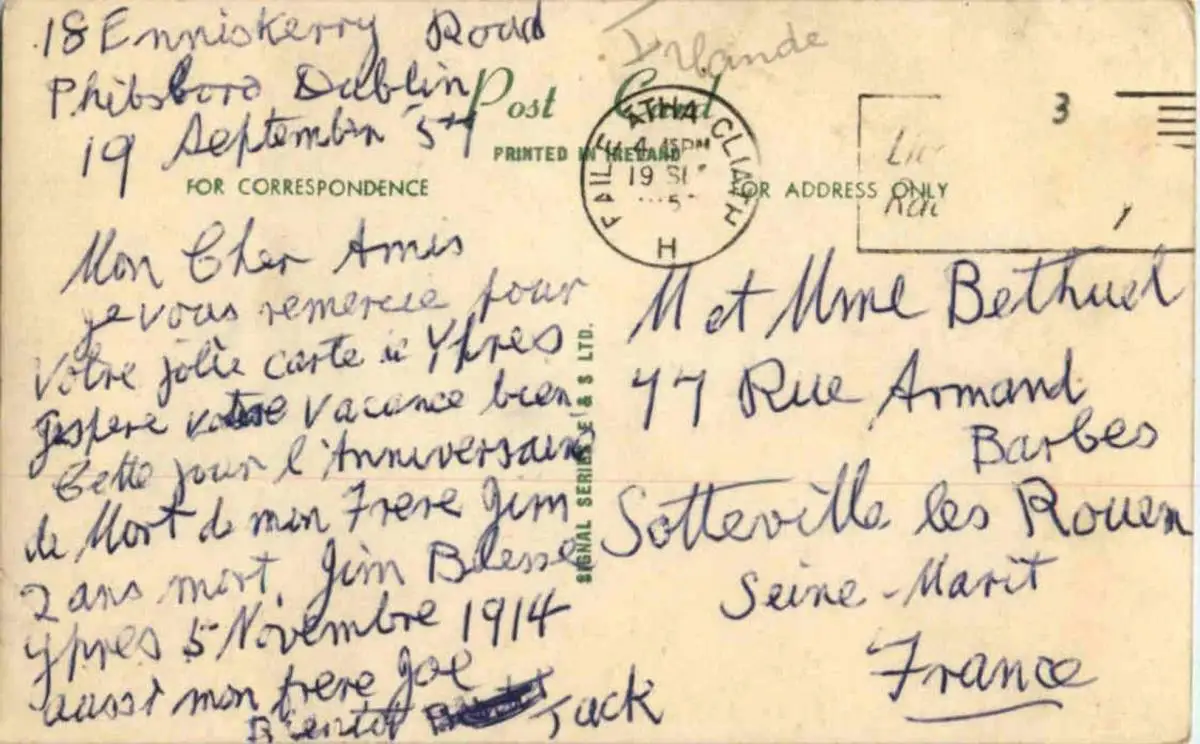 18 Enniskerry Road
Phibsboro Dublin
19 September 57
Irlande
Post Card
PRINTED IN IRELAND
FOR CORRESPONDENCE
FOR ADDRESS ONLY
BAILE ATHA CLIATH
4.15PM
19 SE
5
H
3
SIGNAL SERIES E & S LTD.
Mon Cher Amis
Je vous remercie pour
Votre jolie carte a Ypres
Jespere votre vacance bien
Cette jour l'Anniversaire
de Mort de mon Frere Jim
2 ans mort. Jim Blesse
Ypres 5 Novembre 1914
aussi mon frere Joe
Bientot Jack
M et Mme Bethuel
77 Rue Armand
Barbes
Sotteville les Rouen
Seine-Marit
France